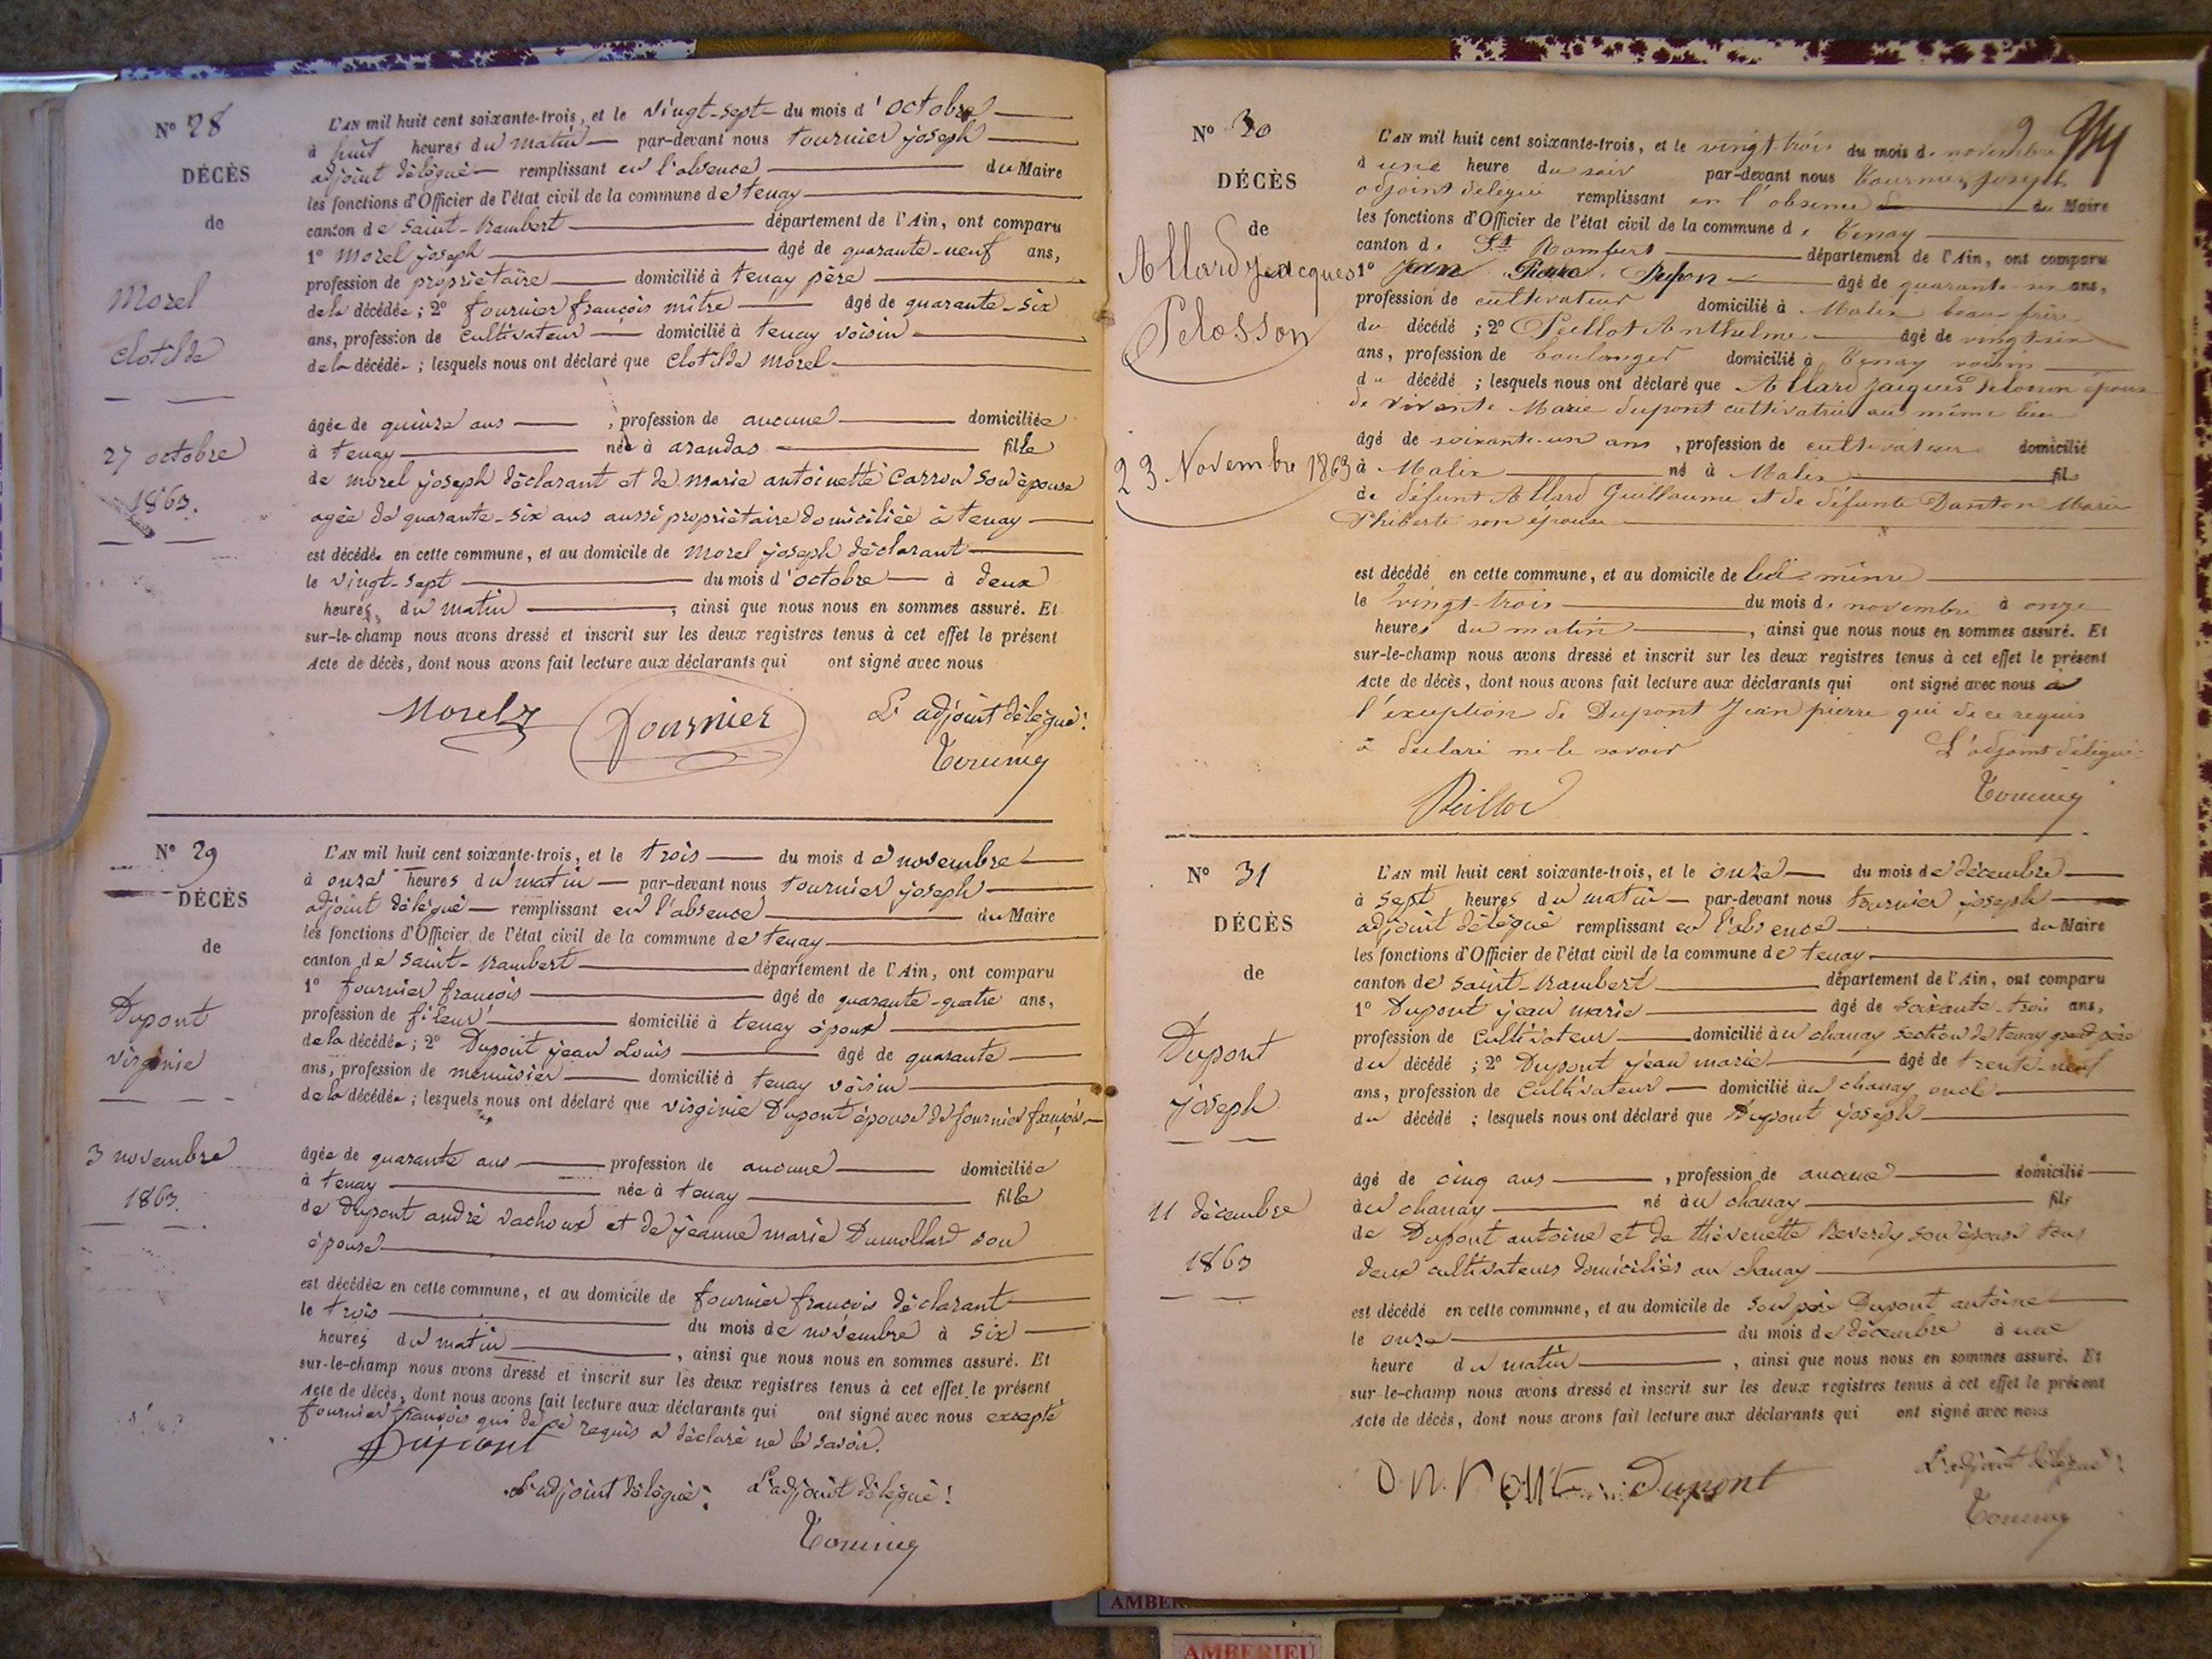 N° 28
DÉCÈS
de
Morel
Clotilde
27 octobre
1863.
L'AN mil huit cent soixante-trois, et le vingt-sept du mois d'octobre
à huit heures du matin par-devant nous tournier joseph
adjoint délégué remplissant en l'absence du Maire
les fonctions d'Officier de l'état civil de la commune de tenay
canton de Saint-Rambert département de l'Ain, ont comparu
1° Morel joseph âgé de quarante-neuf ans,
profession de propriétaire domicilié à tenay père
de la décédée ; 2° fournier françois mître âgé de quarante-six
ans, profession de cultivateur domicilié à tenay voisin
de la décédée ; lesquels nous ont déclaré que Clotilde Morel
âgée de quinze ans, profession de aucune domiciliée
à tenay née à arandas fille
de morel joseph déclarant et de marie antoinette Carron son épouse
agée de quarante-six ans aussi propriétaire domiciliée à tenay
est décédée en cette commune, et au domicile de Morel joseph déclarant
le vingt-sept du mois d'octobre à deux
heures du matin, ainsi que nous nous en sommes assuré. Et
sur-le-champ nous avons dressé et inscrit sur les deux registres tenus à cet effet le présent
Acte de décès, dont nous avons fait lecture aux déclarants qui ont signé avec nous
Morel Fournier L'adjoint délégué :
N° 29
DÉCÈS
de
Dupont
virginie
3 novembre
1863.
L'AN mil huit cent soixante-trois, et le trois du mois de novembre
à onze heures du matin par-devant nous tournier joseph
adjoint délégué remplissant en l'absence du Maire
les fonctions d'Officier de l'état civil de la commune de tenay
canton de Saint-Rambert département de l'Ain, ont comparu
1° fournier françois âgé de quarante-quatre ans,
profession de fileur domicilié à tenay époux
de la décédée ; 2° Dupont jean Louis âgé de quarante
ans, profession de menuisier domicilié à tenay voisin
de la décédée ; lesquels nous ont déclaré que virginie Dupont épouse de fournier françois
âgée de quarante ans profession de aucune domiciliée
à tenay née à tenay fille
de Dupont andré vachoux et de jeanne marie Dumollard son
épouse
est décédée en cette commune, et au domicile de fournier françois déclarant
le trois du mois de novembre à six
heures du matin, ainsi que nous nous en sommes assuré. Et
sur-le-champ nous avons dressé et inscrit sur les deux registres tenus à cet effet le présent
Acte de décès, dont nous avons fait lecture aux déclarants qui ont signé avec nous excepté
fournier françois qui de ce requis a déclaré ne le savoir.
Dupont
L'adjoint délégué : L'adjoint délégué !
N° 30
DÉCÈS
de
Allard Jacques
Pelosson
23 Novembre 1863
L'AN mil huit cent soixante-trois, et le vingt-trois du mois de novembre
à une heure du soir par-devant nous Tournier Joseph
adjoint délégué remplissant en l'absence du Maire
les fonctions d'Officier de l'état civil de la commune de Tenay
canton de St Rambert département de l'Ain, ont comparu
1° Jean Pierre Dupon âgé de quarante-six ans,
profession de cultivateur domicilié à Malix beau-frère
du décédé ; 2° Peillot Anthelme âgé de vingt-six
ans, profession de boulanger domicilié à Tenay voisin
du décédé ; lesquels nous ont déclaré que Allard Jacques Pelosson époux
de vivante Marie Dupont cultivatrice au même lieu
âgé de soixante-un ans, profession de cultivateur domicilié
à Malix né à Malix fils
de défunt Allard Guillaume et de défunte Danton Marie
Phiberte son épouse
est décédé en cette commune, et au domicile de lui-même
le vingt-trois du mois de novembre à onze
heures du matin, ainsi que nous nous en sommes assuré. Et
sur-le-champ nous avons dressé et inscrit sur les deux registres tenus à cet effet le présent
Acte de décès, dont nous avons fait lecture aux déclarants qui ont signé avec nous à
l'exception de Dupont Jean pierre qui de ce requis
a déclaré ne le savoir L'adjoint délégué :
Peillod
N° 31
DÉCÈS
de
Dupont
joseph
11 décembre
1863
L'AN mil huit cent soixante-trois, et le onze du mois de décembre
à sept heures du matin par-devant nous tournier joseph
adjoint délégué remplissant en l'absence du Maire
les fonctions d'Officier de l'état civil de la commune de tenay
canton de Saint-Rambert département de l'Ain, ont comparu
1° Dupont jean marie âgé de soixante-trois ans,
profession de cultivateur domicilié au chanay section de tenay grand-père
du décédé ; 2° Dupont jean marie âgé de trente-neuf
ans, profession de cultivateur domicilié au chanay oncle
du décédé ; lesquels nous ont déclaré que Dupont joseph
âgé de cinq ans, profession de aucune domicilié
au chanay né au chanay fils
de Dupont antoine et de thévenette Reverdy son épouse tous
deux cultivateurs domiciliés au chanay
est décédé en cette commune, et au domicile de son père Dupont antoine
le onze du mois de décembre à une
heure du matin, ainsi que nous nous en sommes assuré. Et
sur-le-champ nous avons dressé et inscrit sur les deux registres tenus à cet effet le présent
Acte de décès, dont nous avons fait lecture aux déclarants qui ont signé avec nous
Dupont L'adjoint délégué !
AMBERIEU